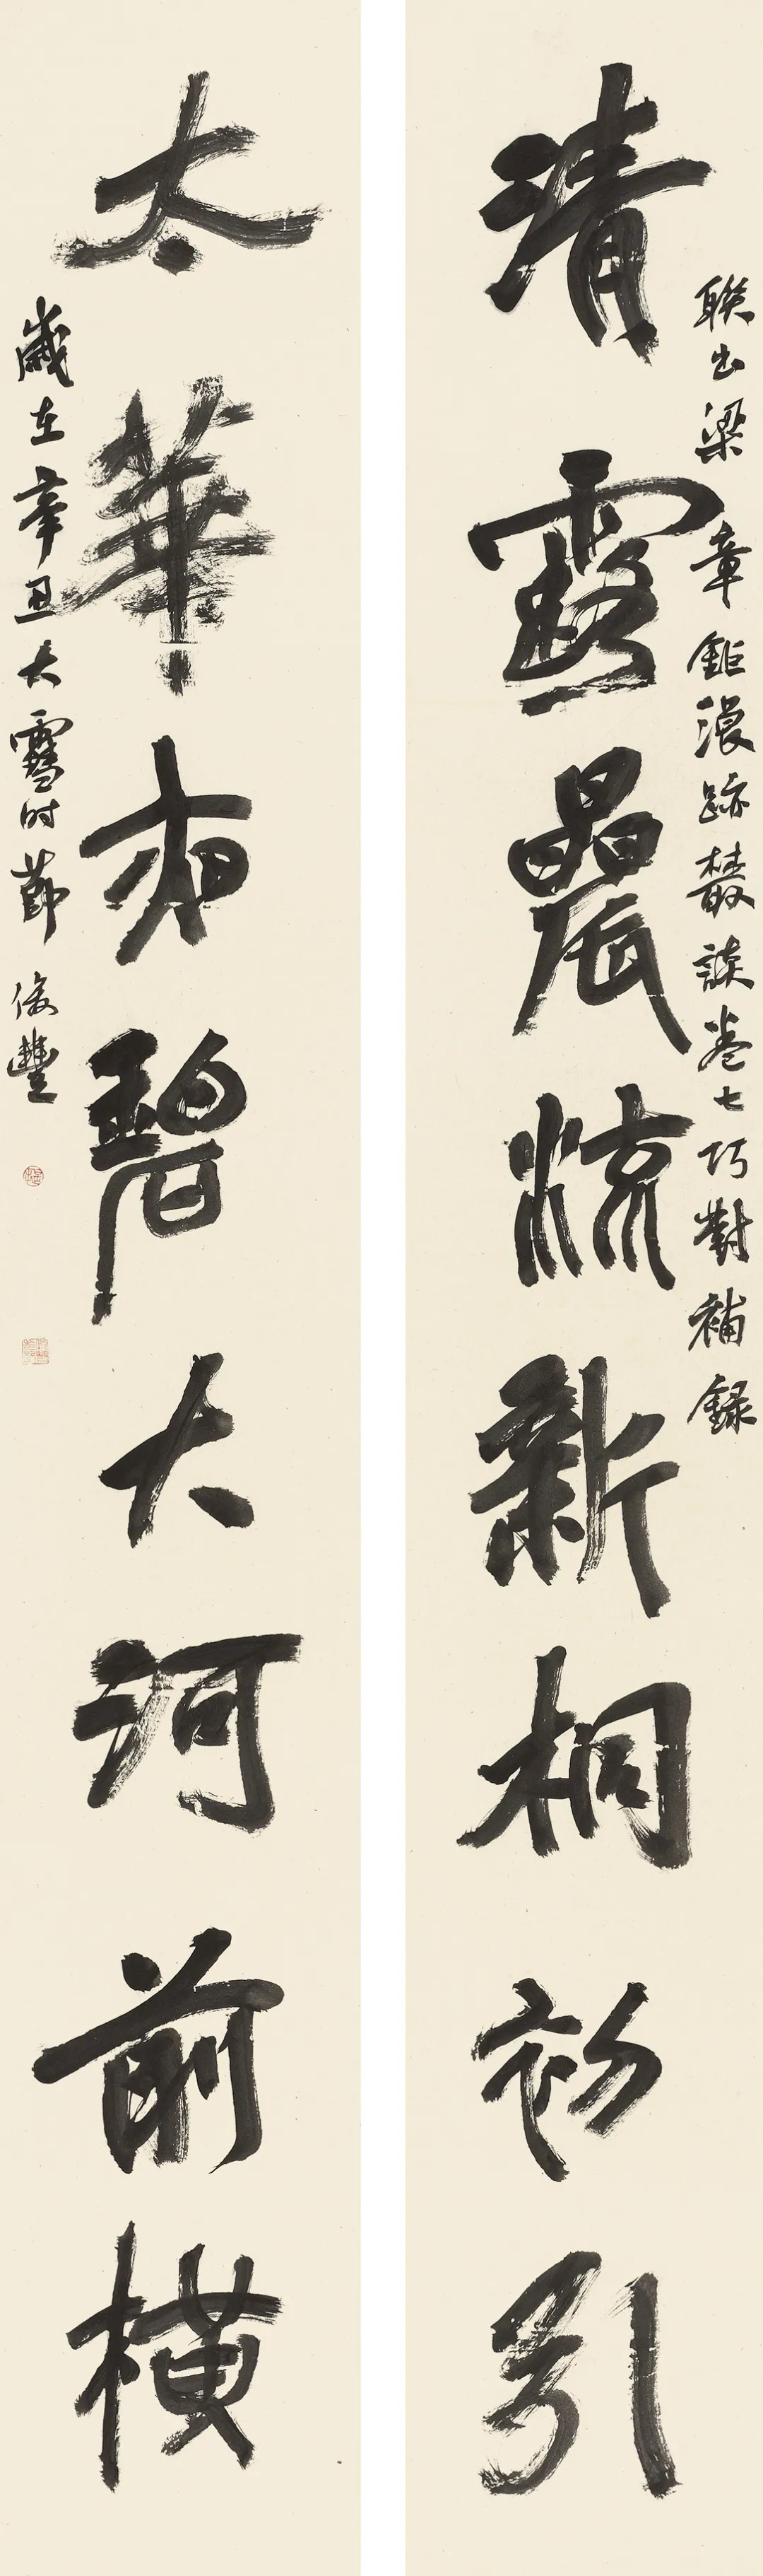 清露晨流新桐初引
聯出梁章鉅浪跡叢談卷七巧對補錄
太華夜碧大河前橫
歲在辛丑大雪时節俊豐